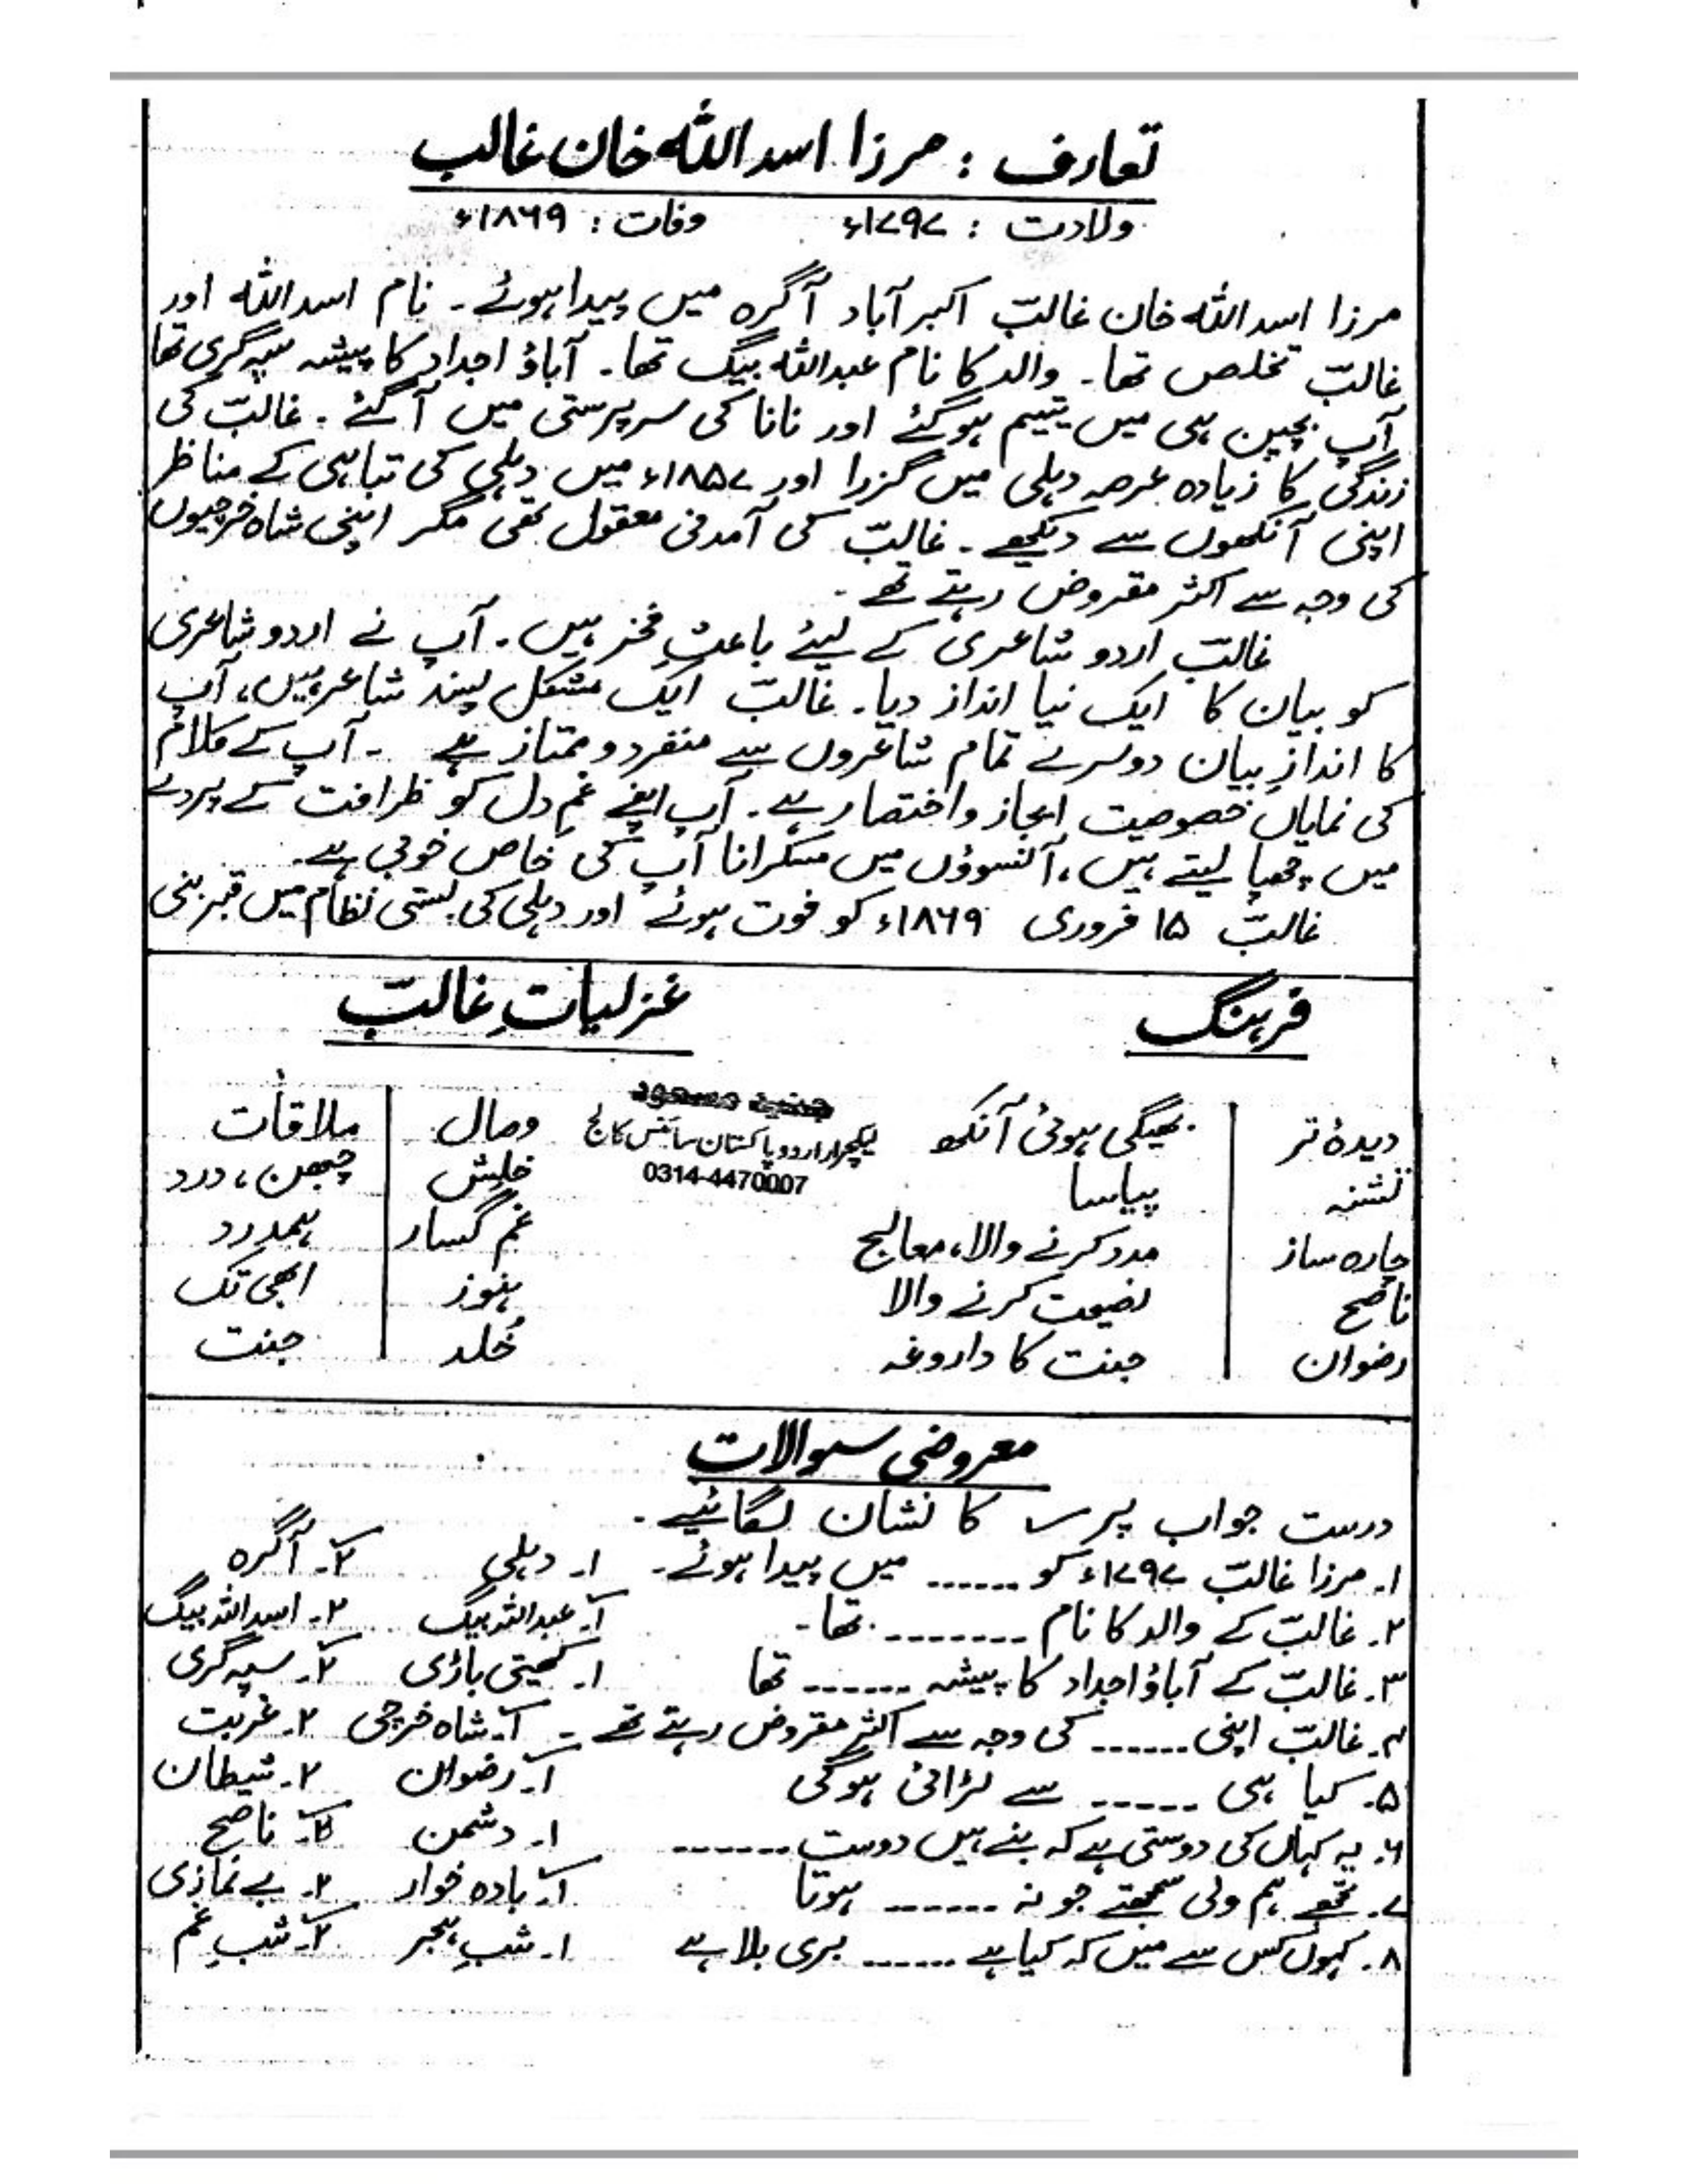 تعارف : مرزا اسد اللہ خان غالب
ولادت : ۱۷۹۷ء وفات : ۱۸۶۹ء
مرزا اسد اللہ خان غالبؔ اکبر آباد آگرہ میں پیدا ہوئے ۔ نام اسد اللہ اور
غالبؔ تخلص تھا۔ والد کا نام عبداللہ بیگ تھا۔ آباؤ اجداد کا پیشہ سپہ گری تھا
آپ بچپن ہی میں یتیم ہوگئے اور نانا کی سرپرستی میں آگئے ۔ غالبؔ کی
زندگی کا زیادہ عرصہ دہلی میں گزرا اور ۱۸۵۷ء میں دہلی کی تباہی کے مناظر
اپنی آنکھوں سے دیکھے ۔ غالبؔ کی آمدنی معقول تھی مگر اپنی شاہ خرچیوں
کی وجہ سے اکثر مقروض رہتے تھے ۔
غالبؔ اردو شاعری کے لیئے باعثِ فخر ہیں ۔ آپ نے اردو شاعری
کو بیان کا ایک نیا انداز دیا۔ غالبؔ ایک مشکل پسند شاعر ہیں، آپ
کا اندازِ بیان دوسرے تمام شاعروں سے منفرد و ممتاز ہے ۔ آپ کے کلام
کی نمایاں خصوصیت ایجاز و اختصار ہے۔ آپ اپنے غمِ دل کو ظرافت کے پردے
میں چھپا لیتے ہیں، آنسوؤں میں مسکرانا آپ کی خاص خوبی ہے۔
غالبؔ ۱۵ فروری ۱۸۶۹ء کو فوت ہوئے اور دہلی کی بستی نظام میں قبر بنی
فرہنگ غزلیاتِ غالبؔ
جنید مسعود
لیکچرار اردو پاکستان سائنس کالج
0314-4470007
دیدۂ تر بھیگی ہوئی آنکھ وصال ملاقات
تشنہ پیاسا خلش چبھن، درد
چارہ ساز مدد کرنے والا، معالج غم گسار ہمدرد
ناصح نصیحت کرنے والا ہنوز ابھی تک
رضوان جنت کا داروغہ خُلد جنت
معروضی سوالات
درست جواب پر ✓ کا نشان لگائیے ۔
۱۔ مرزا غالبؔ ۱۷۹۷ء کو ...... میں پیدا ہوئے۔ ۱۔ دہلی ۲۔ آگرہ
۲۔ غالبؔ کے والد کا نام -------- تھا۔ ۱۔ عبداللہ بیگ ۲۔ اسد اللہ بیگ
۳۔ غالبؔ کے آباؤ اجداد کا پیشہ ------ تھا ۱۔ کھیتی باڑی ۲۔ سپہ گری
۴۔ غالبؔ اپنی ...... کی وجہ سے اکثر مقروض رہتے تھے ۔ ۱۔ شاہ خرچی ۲۔ غربت
۵۔ کیا ہی ------ سے لڑائی ہوگی ۱۔ رضوان ۲۔ شیطان
۶۔ یہ کہاں کی دوستی ہے کہ بنے ہیں دوست ------- ۱۔ دشمن ۲۔ ناصح
۷۔ تجھے ہم ولی سمجھتے جو نہ ------- ہوتا ۱۔ بادہ خوار ۲۔ بے نمازی
۸۔ کہوں کس سے میں کہ کیا ہے ...... بری بلا ہے ۱۔ شبِ ہجر ۲۔ شبِ غم